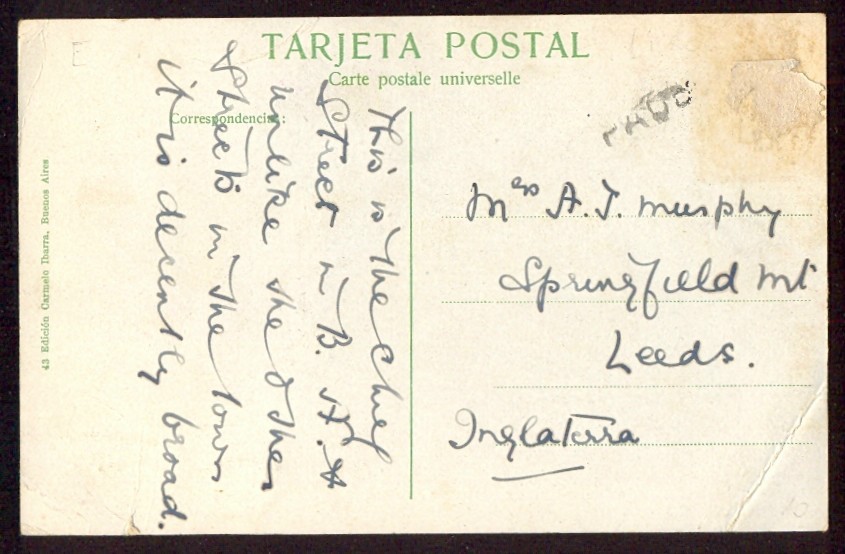 TARJETA POSTAL
Carte postale universelle
Correspondencia:
This is the chief
street in B. A. &
unlike the other
streets in the town
it is decently broad.
Mrs A. J. Murphy
Springfield Mt
Leeds.
Inglaterra
43 Edición Carmelo Ibarra, Buenos Aires